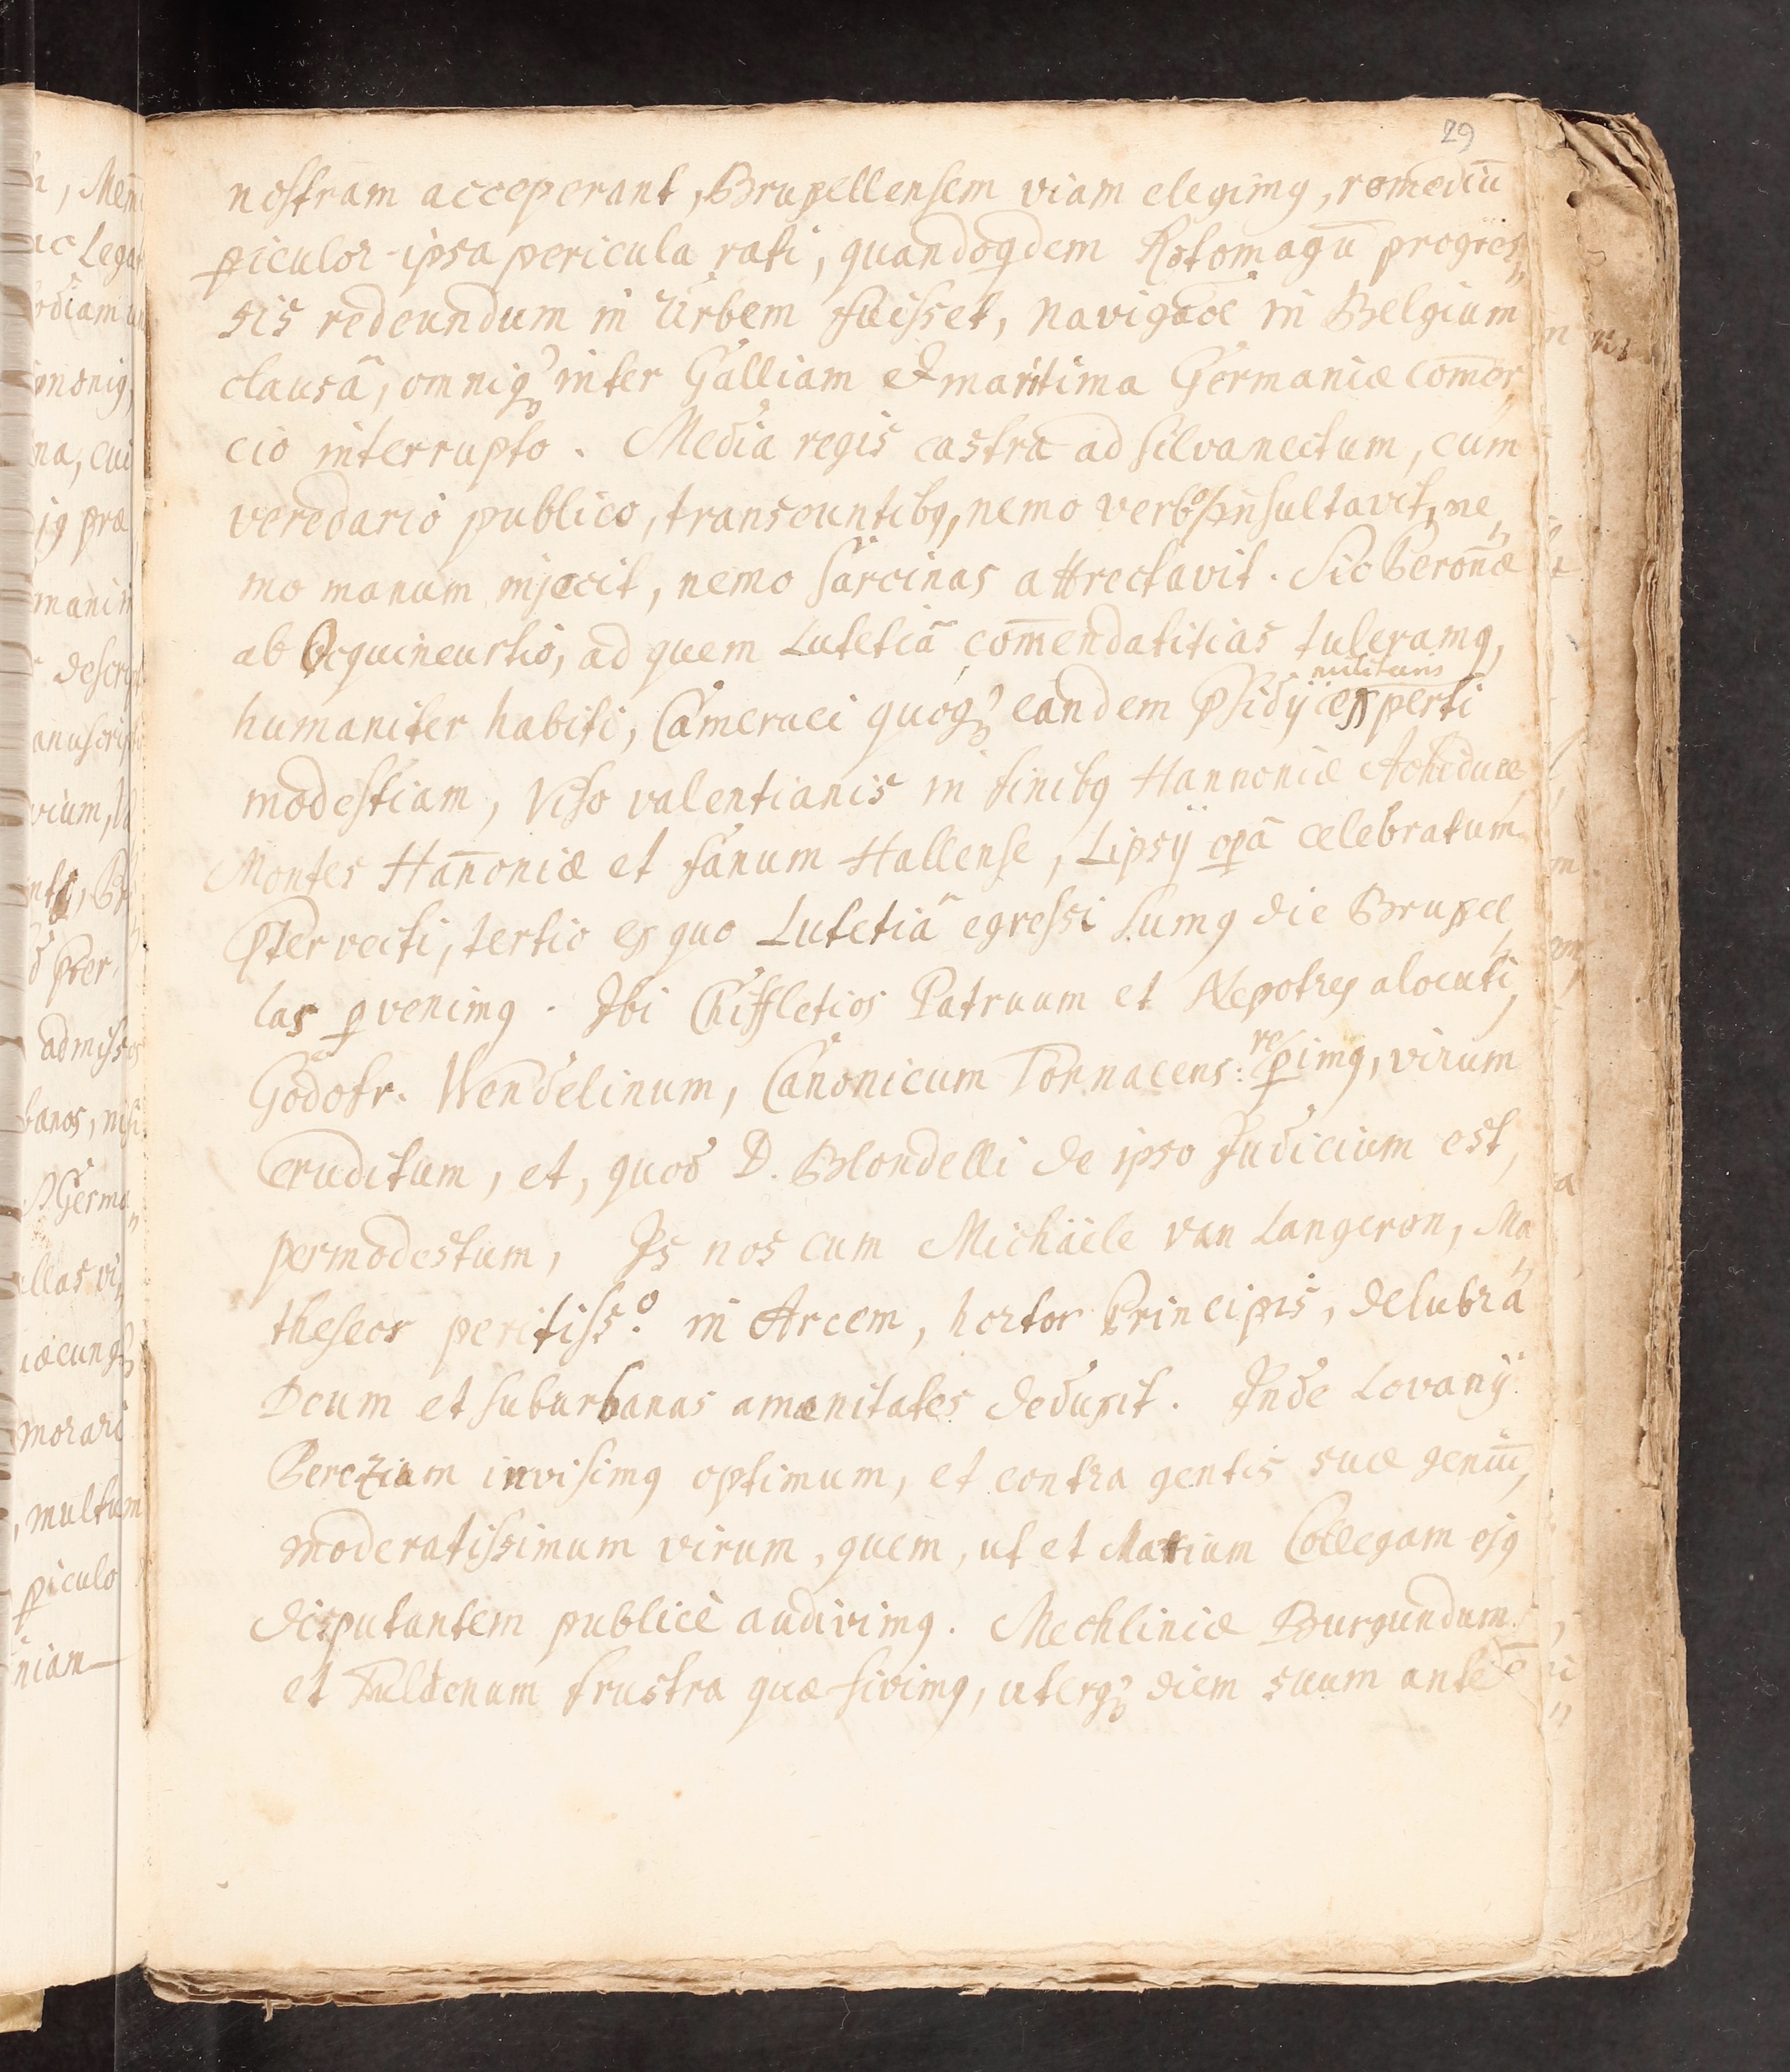 29
nostram acceperant, Bruxellensem viam elegimꝗ, remediū
ꝑiculor ipsa pericula rati, quandoqdem Rotomagū progres„
sis redeundum in Urbem fuisset, navigaõe in Belgium
clausâ, omniqꝫ inter Galliam et maritima Germaniæ com̄er„
cio interrupto. Media regis castra ad Silvanectum, cum
veredario publico, transeuntibꝗ, nemo verbo insultavit, ne„
mo manum injecit, nemo sarcinas attrectavit. Sic Peronæ
ab Ocquincurtio, ad quem Lutetiâ com̄endatitias tuleramꝗ,
humaniter habiti, Cameraci quoqꝫ eandem p̄sidij militaris experti
modestiam, viso Valentianis in finibꝗ Hannoniæ Archiduce,
Montes Han̄oniæ et fanum Hallense, Lipsij opâ celebratum
p̄tervecti, tertio ex quo Lutetiâ egressi sumꝗ die Bruxel„
las ꝑvenimꝗ. Ibi Chiffletios Patruum et Nepotes alocuti,
Godofr. Wendelinum, Canonicum Tornacens: reꝑimꝗ, virum
eruditum, et, quod D. Blondelli de ipso Judicium est,
permodestum, Is nos cum Michäele van Langeron, Ma„
theseos peritiss.o in Arcem, hortos Principis, delubra
Deum et suburbanas amænitates deduxit. Inde Lovanij
Perezium invisimꝗ optimum, et contra gentis suæ geniū,
moderatissimum virum, quem, ut et Collegam ejꝗ
disputantem publicè audivimꝗ. Mechliniæ Burgundum
et Tuldenum frustra quæsivimꝗ, uterqꝫ diem suum ante